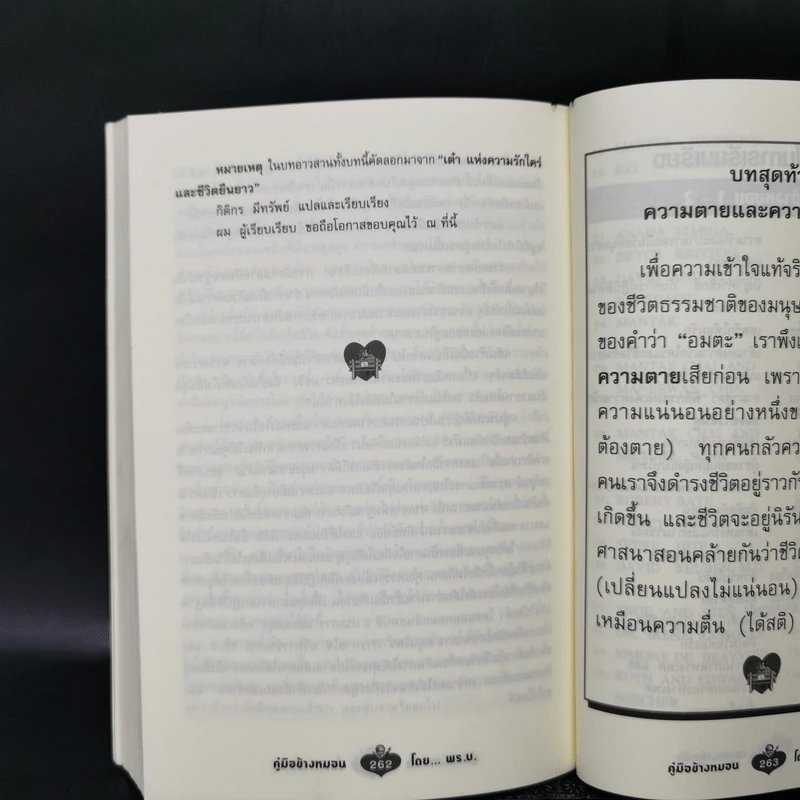 หมายเหตุ ในบทอาวสานทั้งบทนี้คัดลอกมาจาก “เต๋า แห่งความรักใคร่
และชีวิตยืนยาว”
กิติกร มีทรัพย์ แปลและเรียบเรียง
ผม ผู้เรียบเรียบ ขอถือโอกาสขอบคุณไว้ ณ ที่นี้
คู่มือข้างหมอน 262 โดย... พร.บ.
บทสุดท้า
ความตายและควา
เพื่อความเข้าใจแท้จริ
ของชีวิตธรรมชาติของมนุษ
ของคำว่า “อมตะ” เราพึงเ
ความตายเสียก่อน เพรา
ความแน่นอนอย่างหนึ่งขอ
ต้องตาย) ทุกคนกลัวคว
คนเราจึงดำรงชีวิตอยู่ราวกั
เกิดขึ้น และชีวิตจะอยู่นิรัน
ศาสนาสอนคล้ายกันว่าชีวิต
(เปลี่ยนแปลงไม่แน่นอน)
เหมือนความตื่น (ได้สติ)
คู่มือข้างหมอน 263